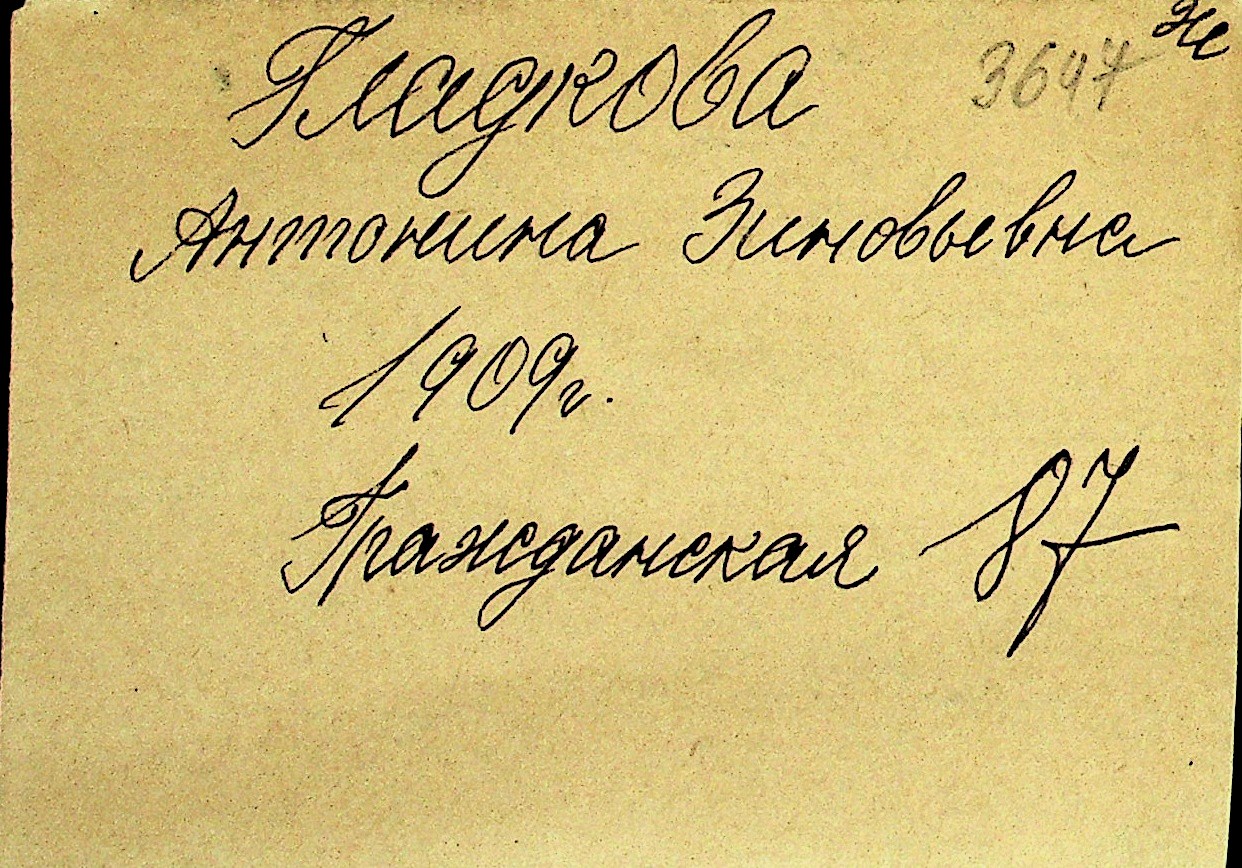 Гладкова 3647
Антонина Зиновьевна
1909г.
Гражданская 87